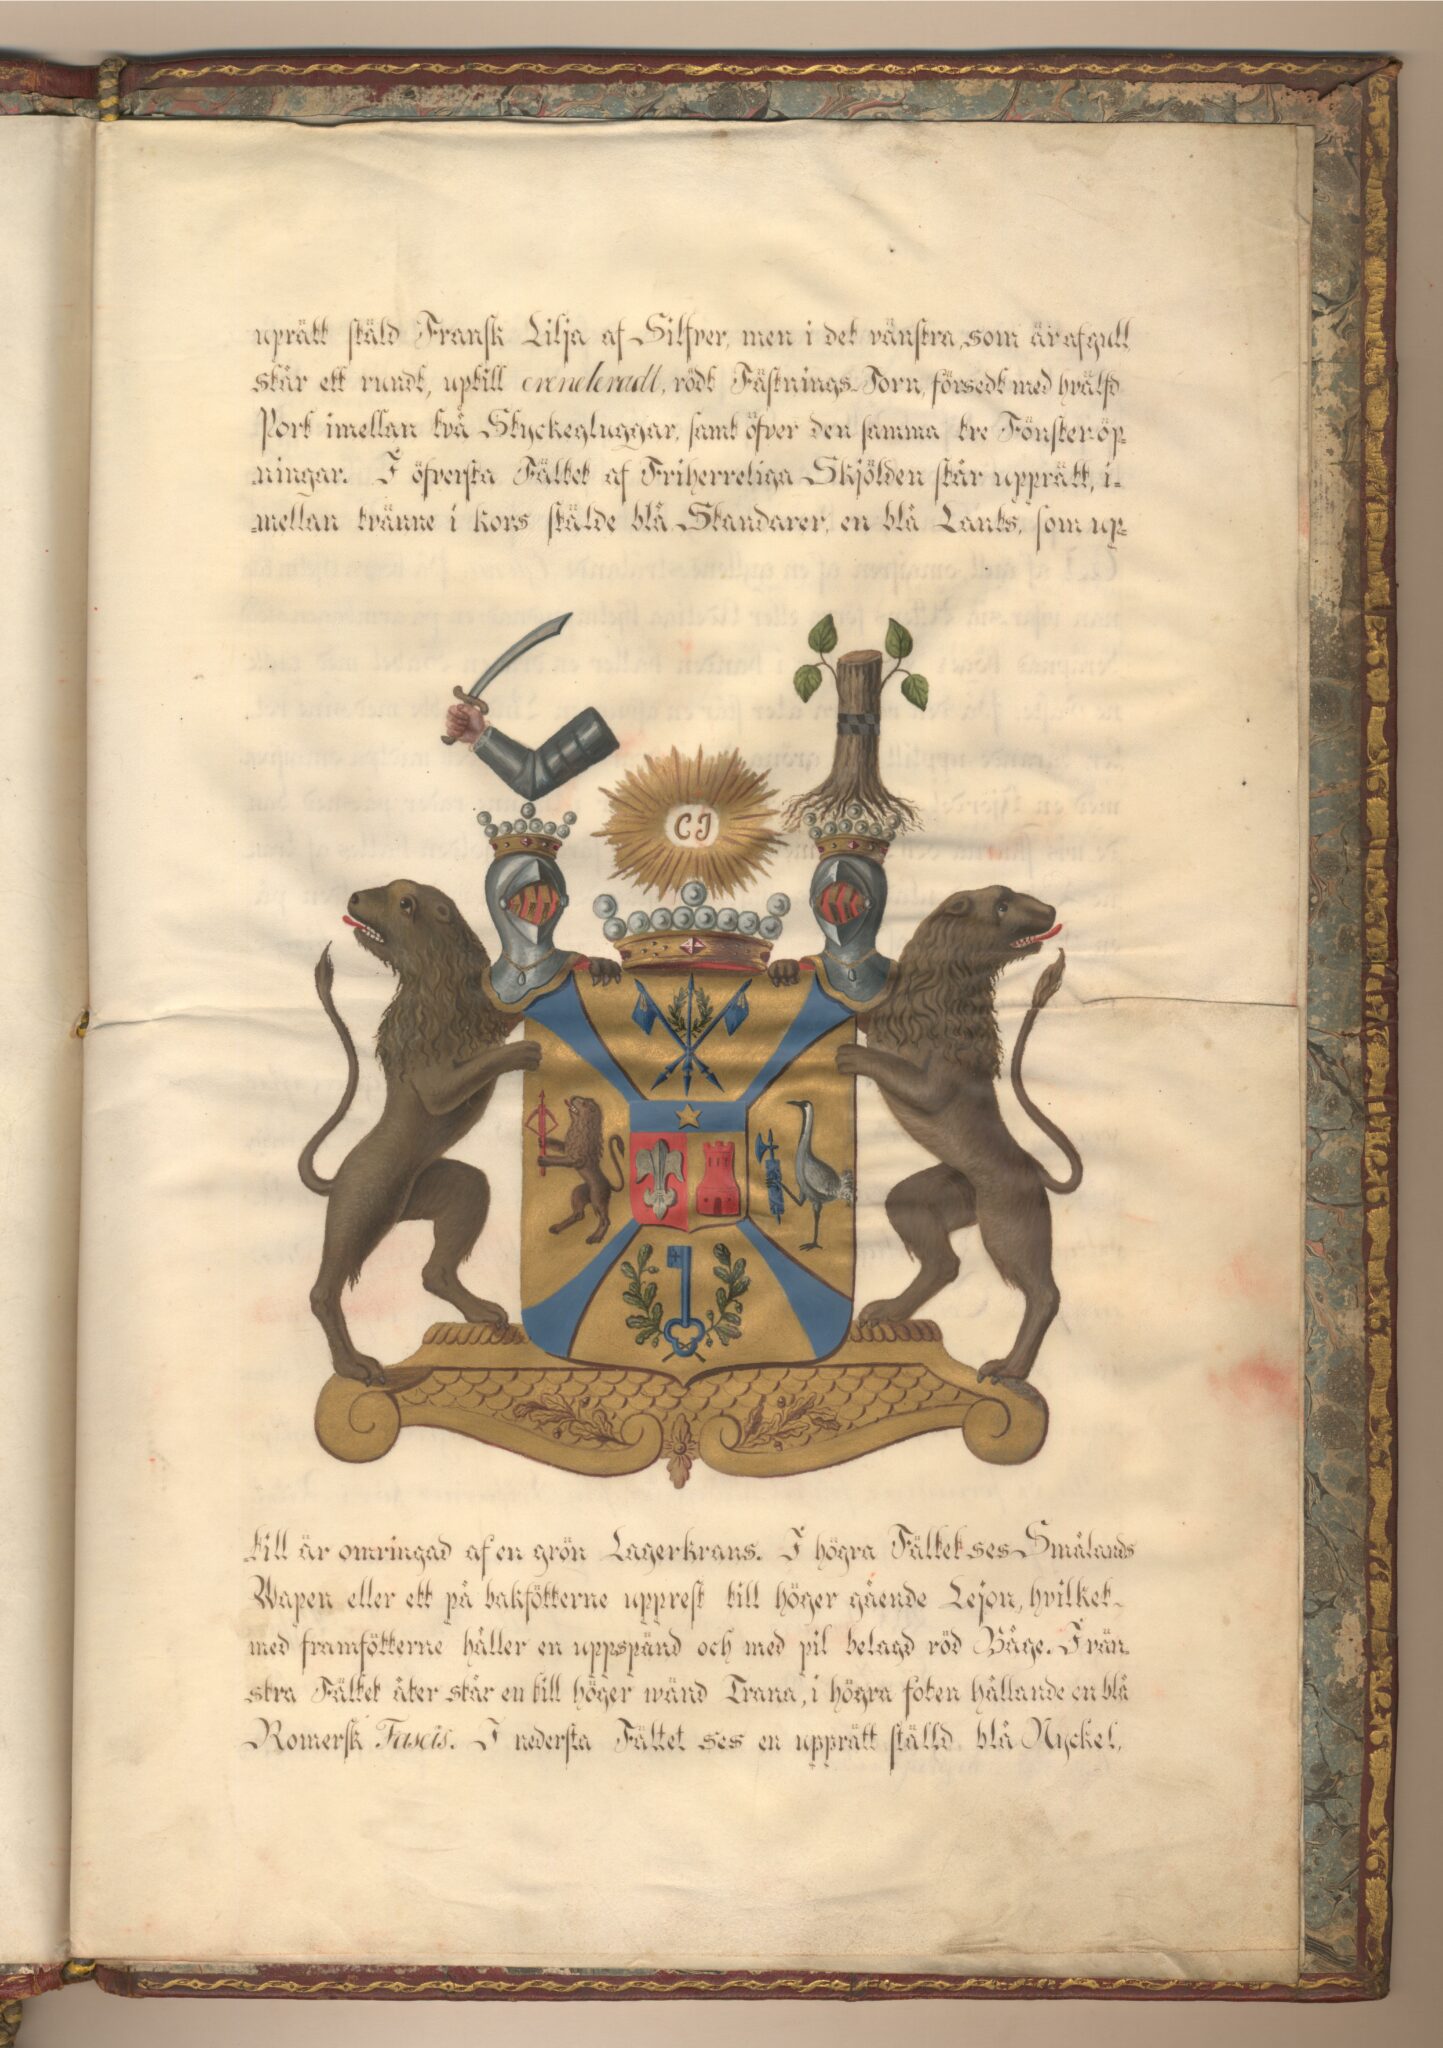 uprätt stäld Fransk Lilja af Silfver, men i det vänstra, som är af gull
står ett rundt, uptill creneleradt, rödt Fästnings-Torn, försedt med hvälfd
Port imellan två Styckegluggar, samt öfver den samma tre Fönsteröp-
ningar. I öfversta Fältet af Friherreliga Skjölden står upprätt, i-
mellan tvänne i kors stälde blå Standarer, en blå Lants, som up-
CJ
till är omringad af en grön Lagerkrans. I högra Fältet ses Smålands
Wapen eller ett på bakfötterne upprest till höger gående Lejon, hvilket
med framfötterne håller en uppspänd och med pil belagd röd Båge. I vän-
stra Fältet åter står en till höger wänd Trana, i högra foten hållande en blå
Romersk Fascis. I nedersta Fältet ses en upprätt ställd blå Nyckel,